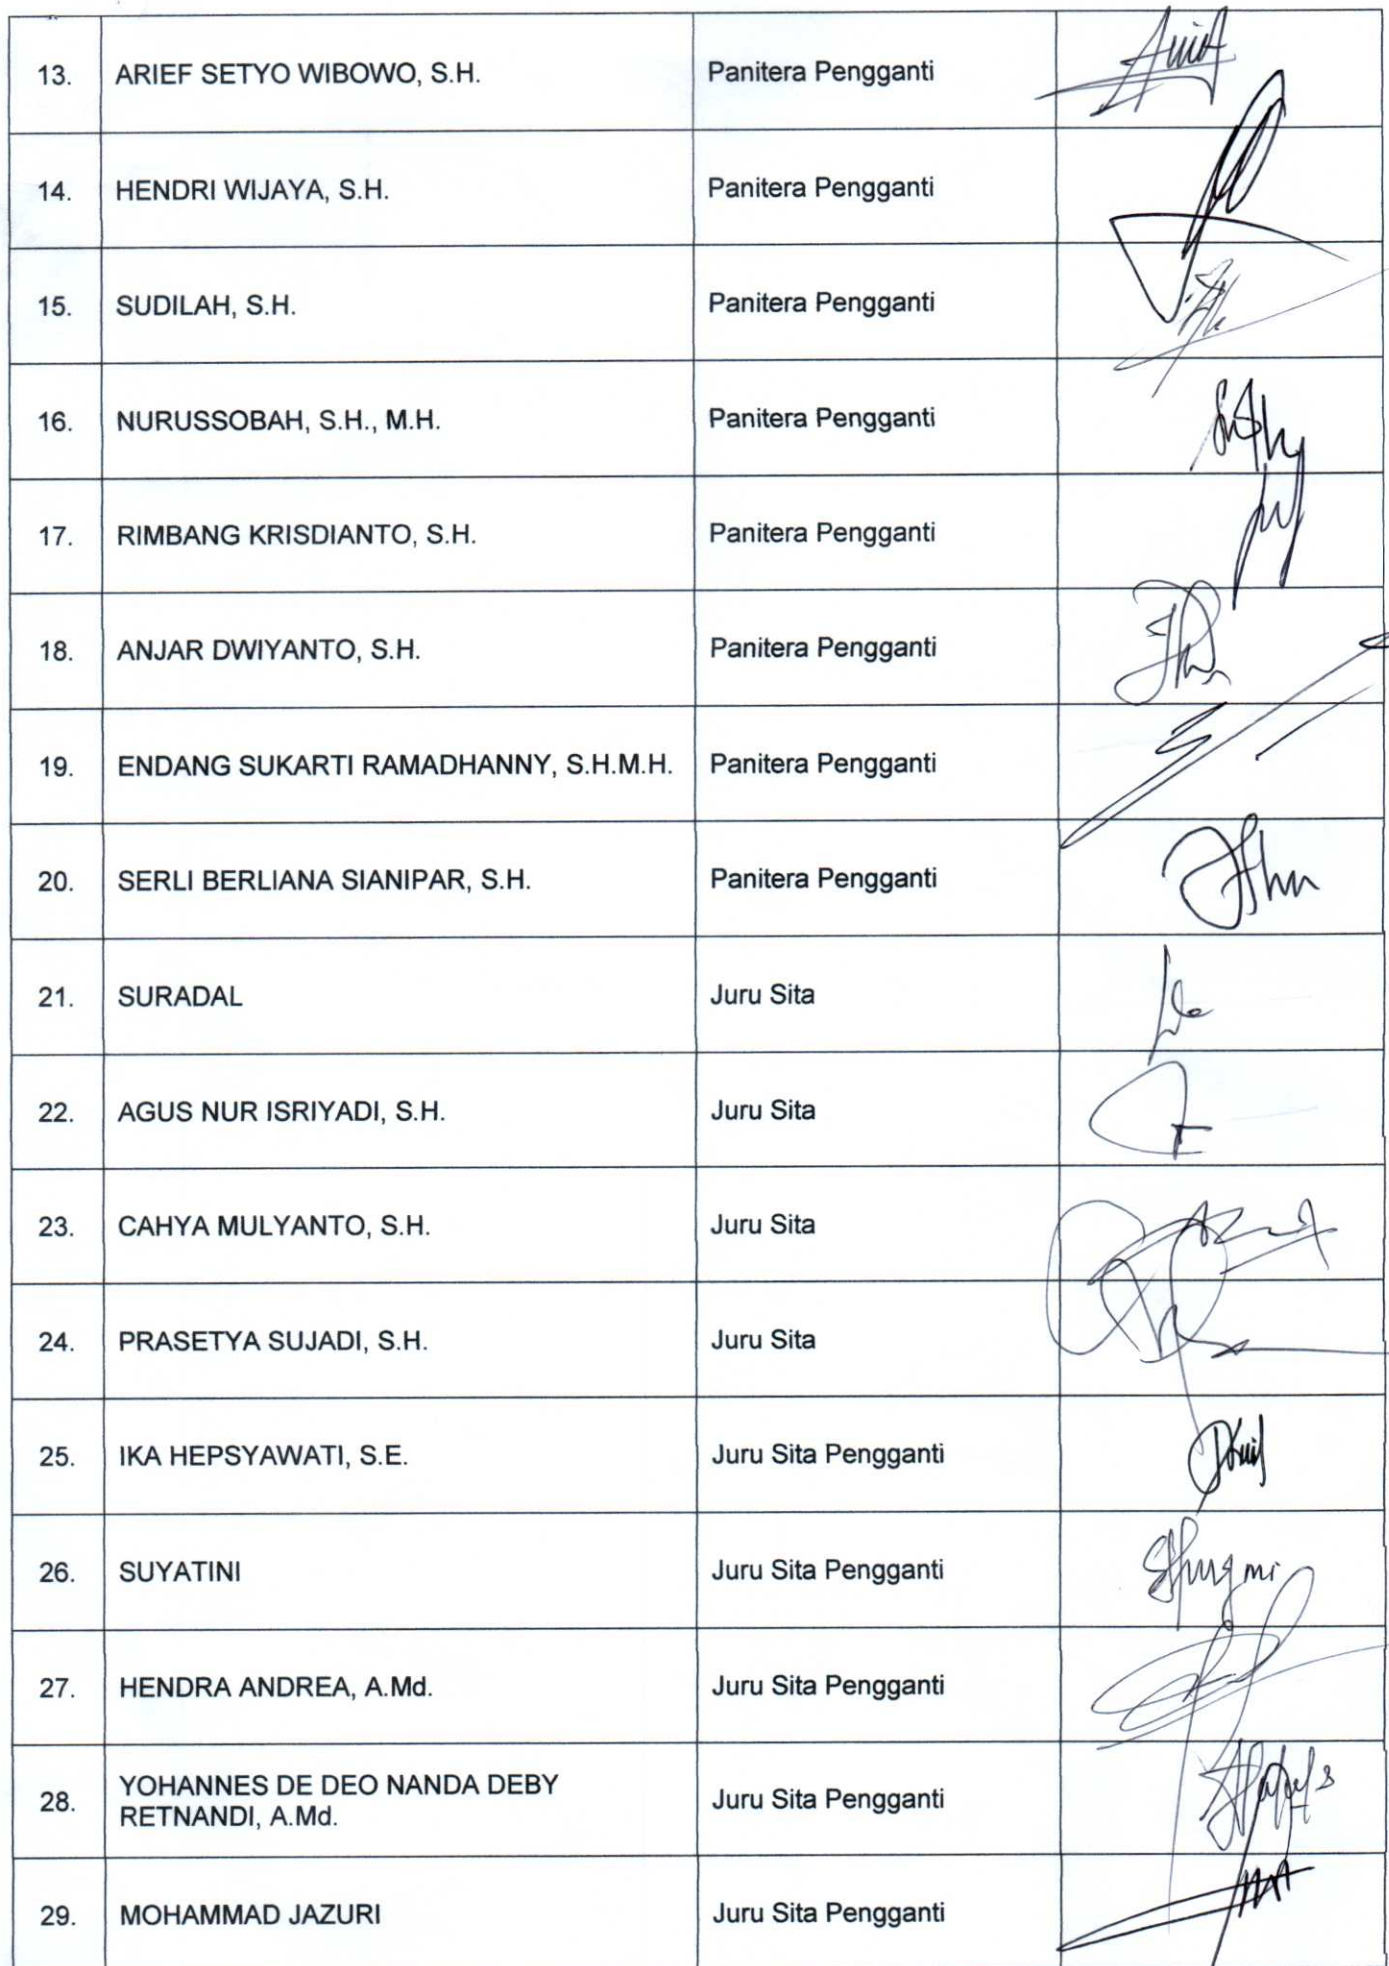 13. ARIEF SETYO WIBOWO, S.H. Panitera Pengganti
14. HENDRI WIJAYA, S.H. Panitera Pengganti
15. SUDILAH, S.H. Panitera Pengganti
16. NURUSSOBAH, S.H., M.H. Panitera Pengganti
17. RIMBANG KRISDIANTO, S.H. Panitera Pengganti
18. ANJAR DWIYANTO, S.H. Panitera Pengganti
19. ENDANG SUKARTI RAMADHANNY, S.H.M.H. Panitera Pengganti
20. SERLI BERLIANA SIANIPAR, S.H. Panitera Pengganti
21. SURADAL Juru Sita
22. AGUS NUR ISRIYADI, S.H. Juru Sita
23. CAHYA MULYANTO, S.H. Juru Sita
24. PRASETYA SUJADI, S.H. Juru Sita
25. IKA HEPSYAWATI, S.E. Juru Sita Pengganti
26. SUYATINI Juru Sita Pengganti
27. HENDRA ANDREA, A.Md. Juru Sita Pengganti
28. YOHANNES DE DEO NANDA DEBY Juru Sita Pengganti
RETNANDI, A.Md.
29. MOHAMMAD JAZURI Juru Sita Pengganti